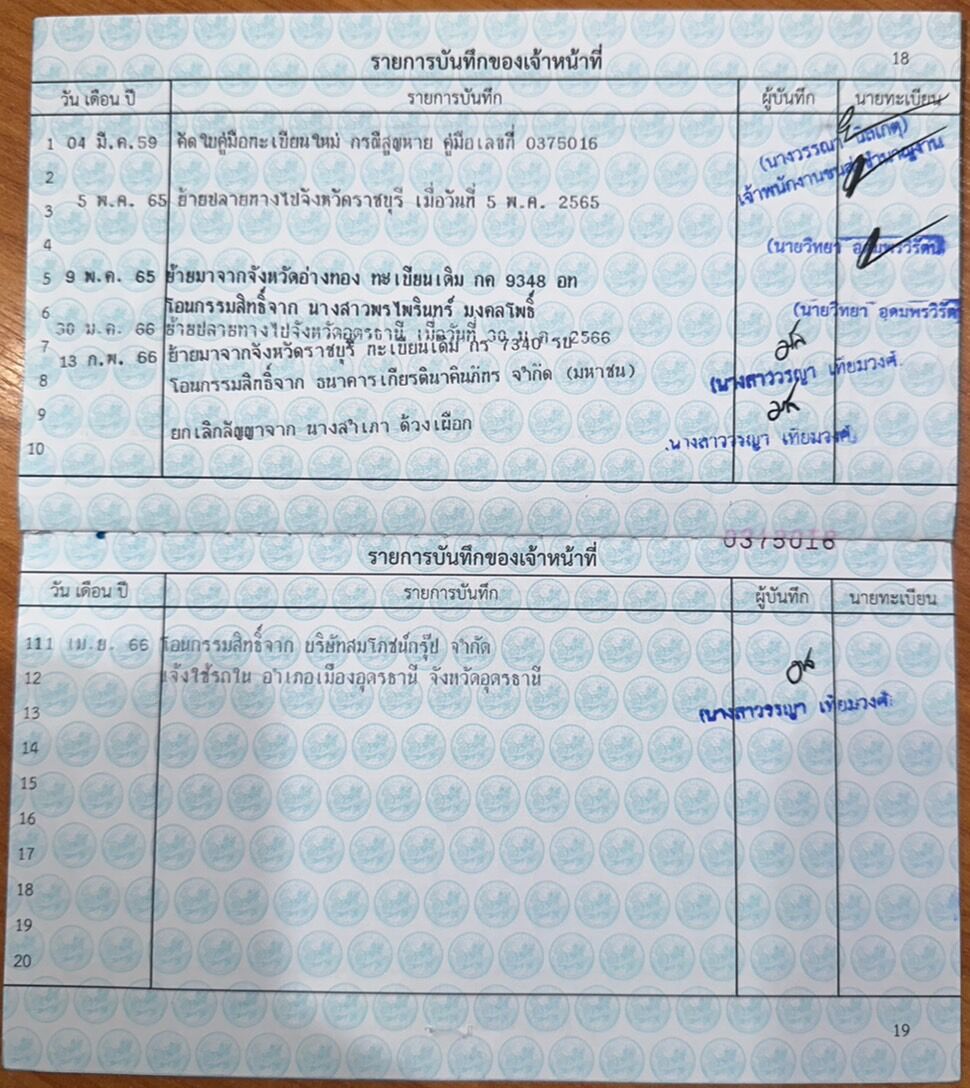 รายการบันทึกของเจ้าหน้าที่ 18
วัน เดือน ปี รายการบันทึก ผู้บันทึก นายทะเบียน
1 04 มี.ค.59 คัดใบคู่มือทะเบียนใหม่ กรณีสูญหาย คู่มือเลขที่ 0375016
(นางวรรณา
2
เจ้าพนักงานขนส่งชำนาญงาน
3 5 พ.ค. 65 ย้ายปลายทางไปจังหวัดราชบุรี เมื่อวันที่ 5 พ.ค. 2565
4 (นายวิทยา อุดมพรวิรัตน์)
5 9 พ.ค. 65 ย้ายมาจากจังหวัดอ่างทอง ทะเบียนเดิม กค 9348 อท
6 โอนกรรมสิทธิ์จาก นางสาวพรไพรินทร์ มงคลโพธิ์
(นายวิทยา อุดมพรวิรัตน์)
30 ม.ค. 66 ย้ายปลายทางไปจังหวัดอุดรธานี เมื่อวันที่ 30 ม.ค. 2566
7 13 ก.พ. 66 ย้ายมาจากจังหวัดราชบุรี ทะเบียนเดิม กร 7340 รบ
8 โอนกรรมสิทธิ์จาก ธนาคารเกียรตินาคินภัทร จำกัด (มหาชน)
(นางสาววรญา เทียมวงศ์)
9
ยกเลิกสัญญาจาก นางสำเภา ด้วงเผือก
10 (นางสาววรญา เทียมวงศ์)
0375018
รายการบันทึกของเจ้าหน้าที่
วัน เดือน ปี รายการบันทึก ผู้บันทึก นายทะเบียน
11 11 เม.ย. 66 โอนกรรมสิทธิ์จาก บริษัทสมโภชน์กรุ๊ป จำกัด
12 แจ้งใช้รถใน อำเภอเมืองอุดรธานี จังหวัดอุดรธานี
13 (นางสาววรญา เทียมวงศ์)
14
15
16
17
18
19
20
19